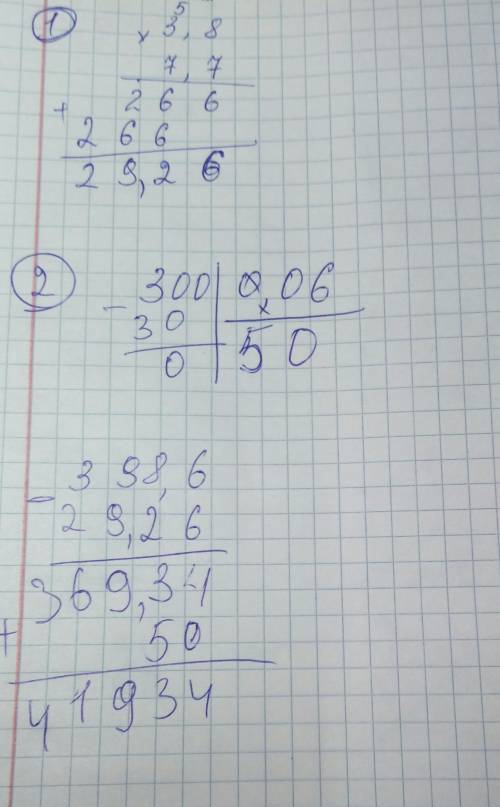 1
5
× 3,8
7,7
266
+ 266
29,26
2
- 300 | 0,06
30 | 50
0
- 398,6
29,26
369,34
+ 50
41934